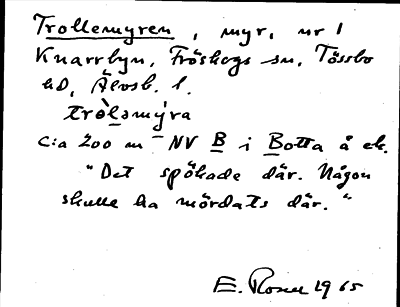 Trollemyren, myr, nr 1
Knarrbyn, Fröskogs sn, Tössbo
hd, Älvsb. l.
tròlsmýra
c:a 200 m NV B i Botta å ek.
"Det spökade där. Någon
skulle ha mördats där."
E. Rosell 1965